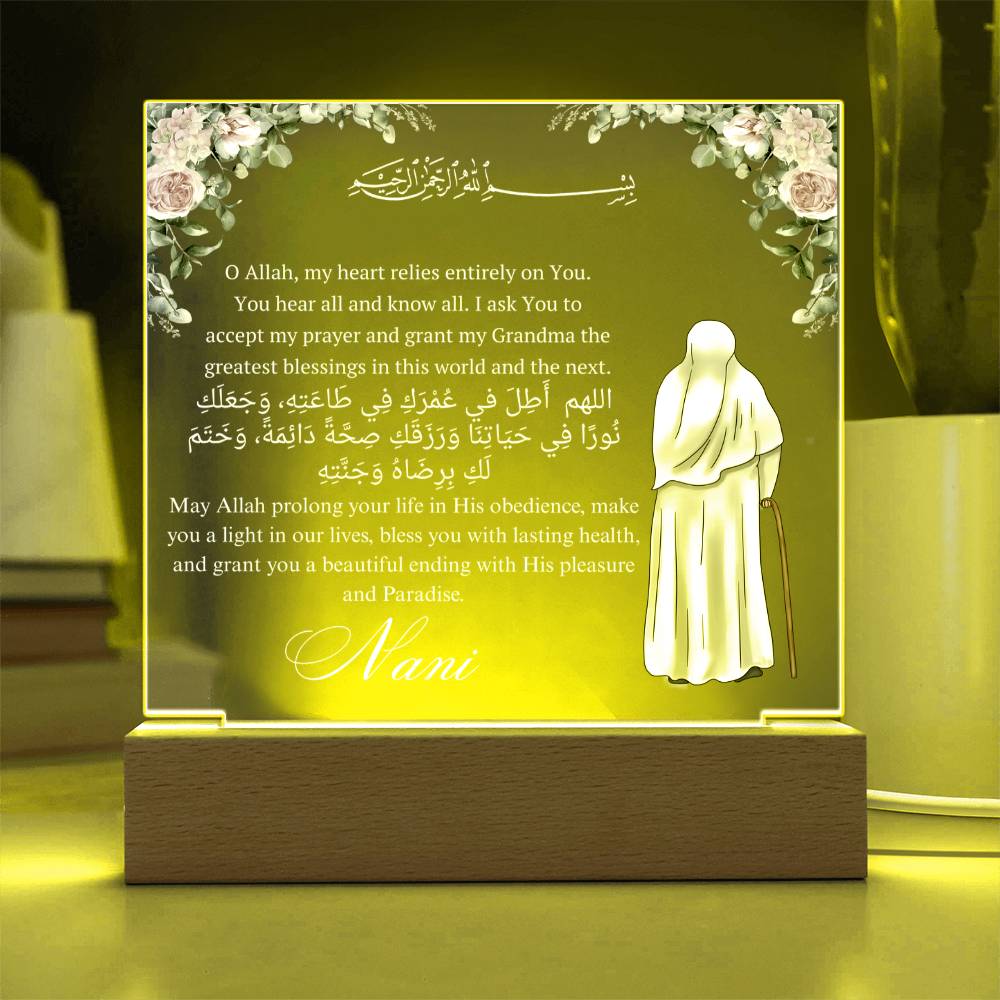 بِسْمِ ٱللَّٰهِ ٱلرَّحْمَٰنِ ٱلرَّحِيمِ
O Allah, my heart relies entirely on You.
You hear all and know all. I ask You to
accept my prayer and grant my Grandma the
greatest blessings in this world and the next.
اللهم أَطِلَ في عُمْرَكِ فِي طَاعَتِهِ، وَجَعَلَكِ
نُورًا فِي حَيَاتِنَا وَرَزَقَكِ صِحَّةً دَائِمَةً، وَخَتَمَ
لَكِ بِرِضَاهُ وَجَنَّتِهِ
May Allah prolong your life in His obedience, make
you a light in our lives, bless you with lasting health,
and grant you a beautiful ending with His pleasure
and Paradise.
Nani